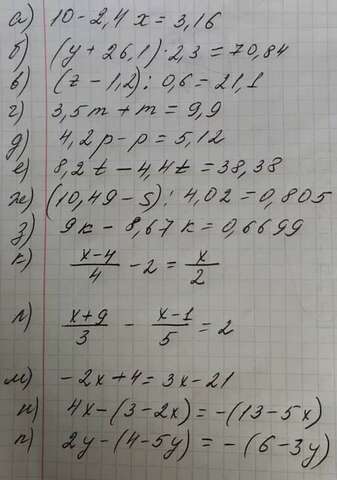 а) 10 - 2,4 x = 3,16
б) (y + 26,1) · 2,3 = 70,84
в) (z - 1,2) : 0,6 = 21,1
г) 3,5m + m = 9,9
д) 4,2p - p = 5,12
е) 8,2t - 4,4t = 38,38
ж) (10,49 - s) : 4,02 = 0,805
з) 9k - 8,67k = 0,6699
к) (x-4)/4 - 2 = x/2
л) (x+9)/3 - (x-1)/5 = 2
м) -2x + 4 = 3x - 21
н) 4x - (3 - 2x) = -(13 - 5x)
п) 2y - (4 - 5y) = -(6 - 3y)